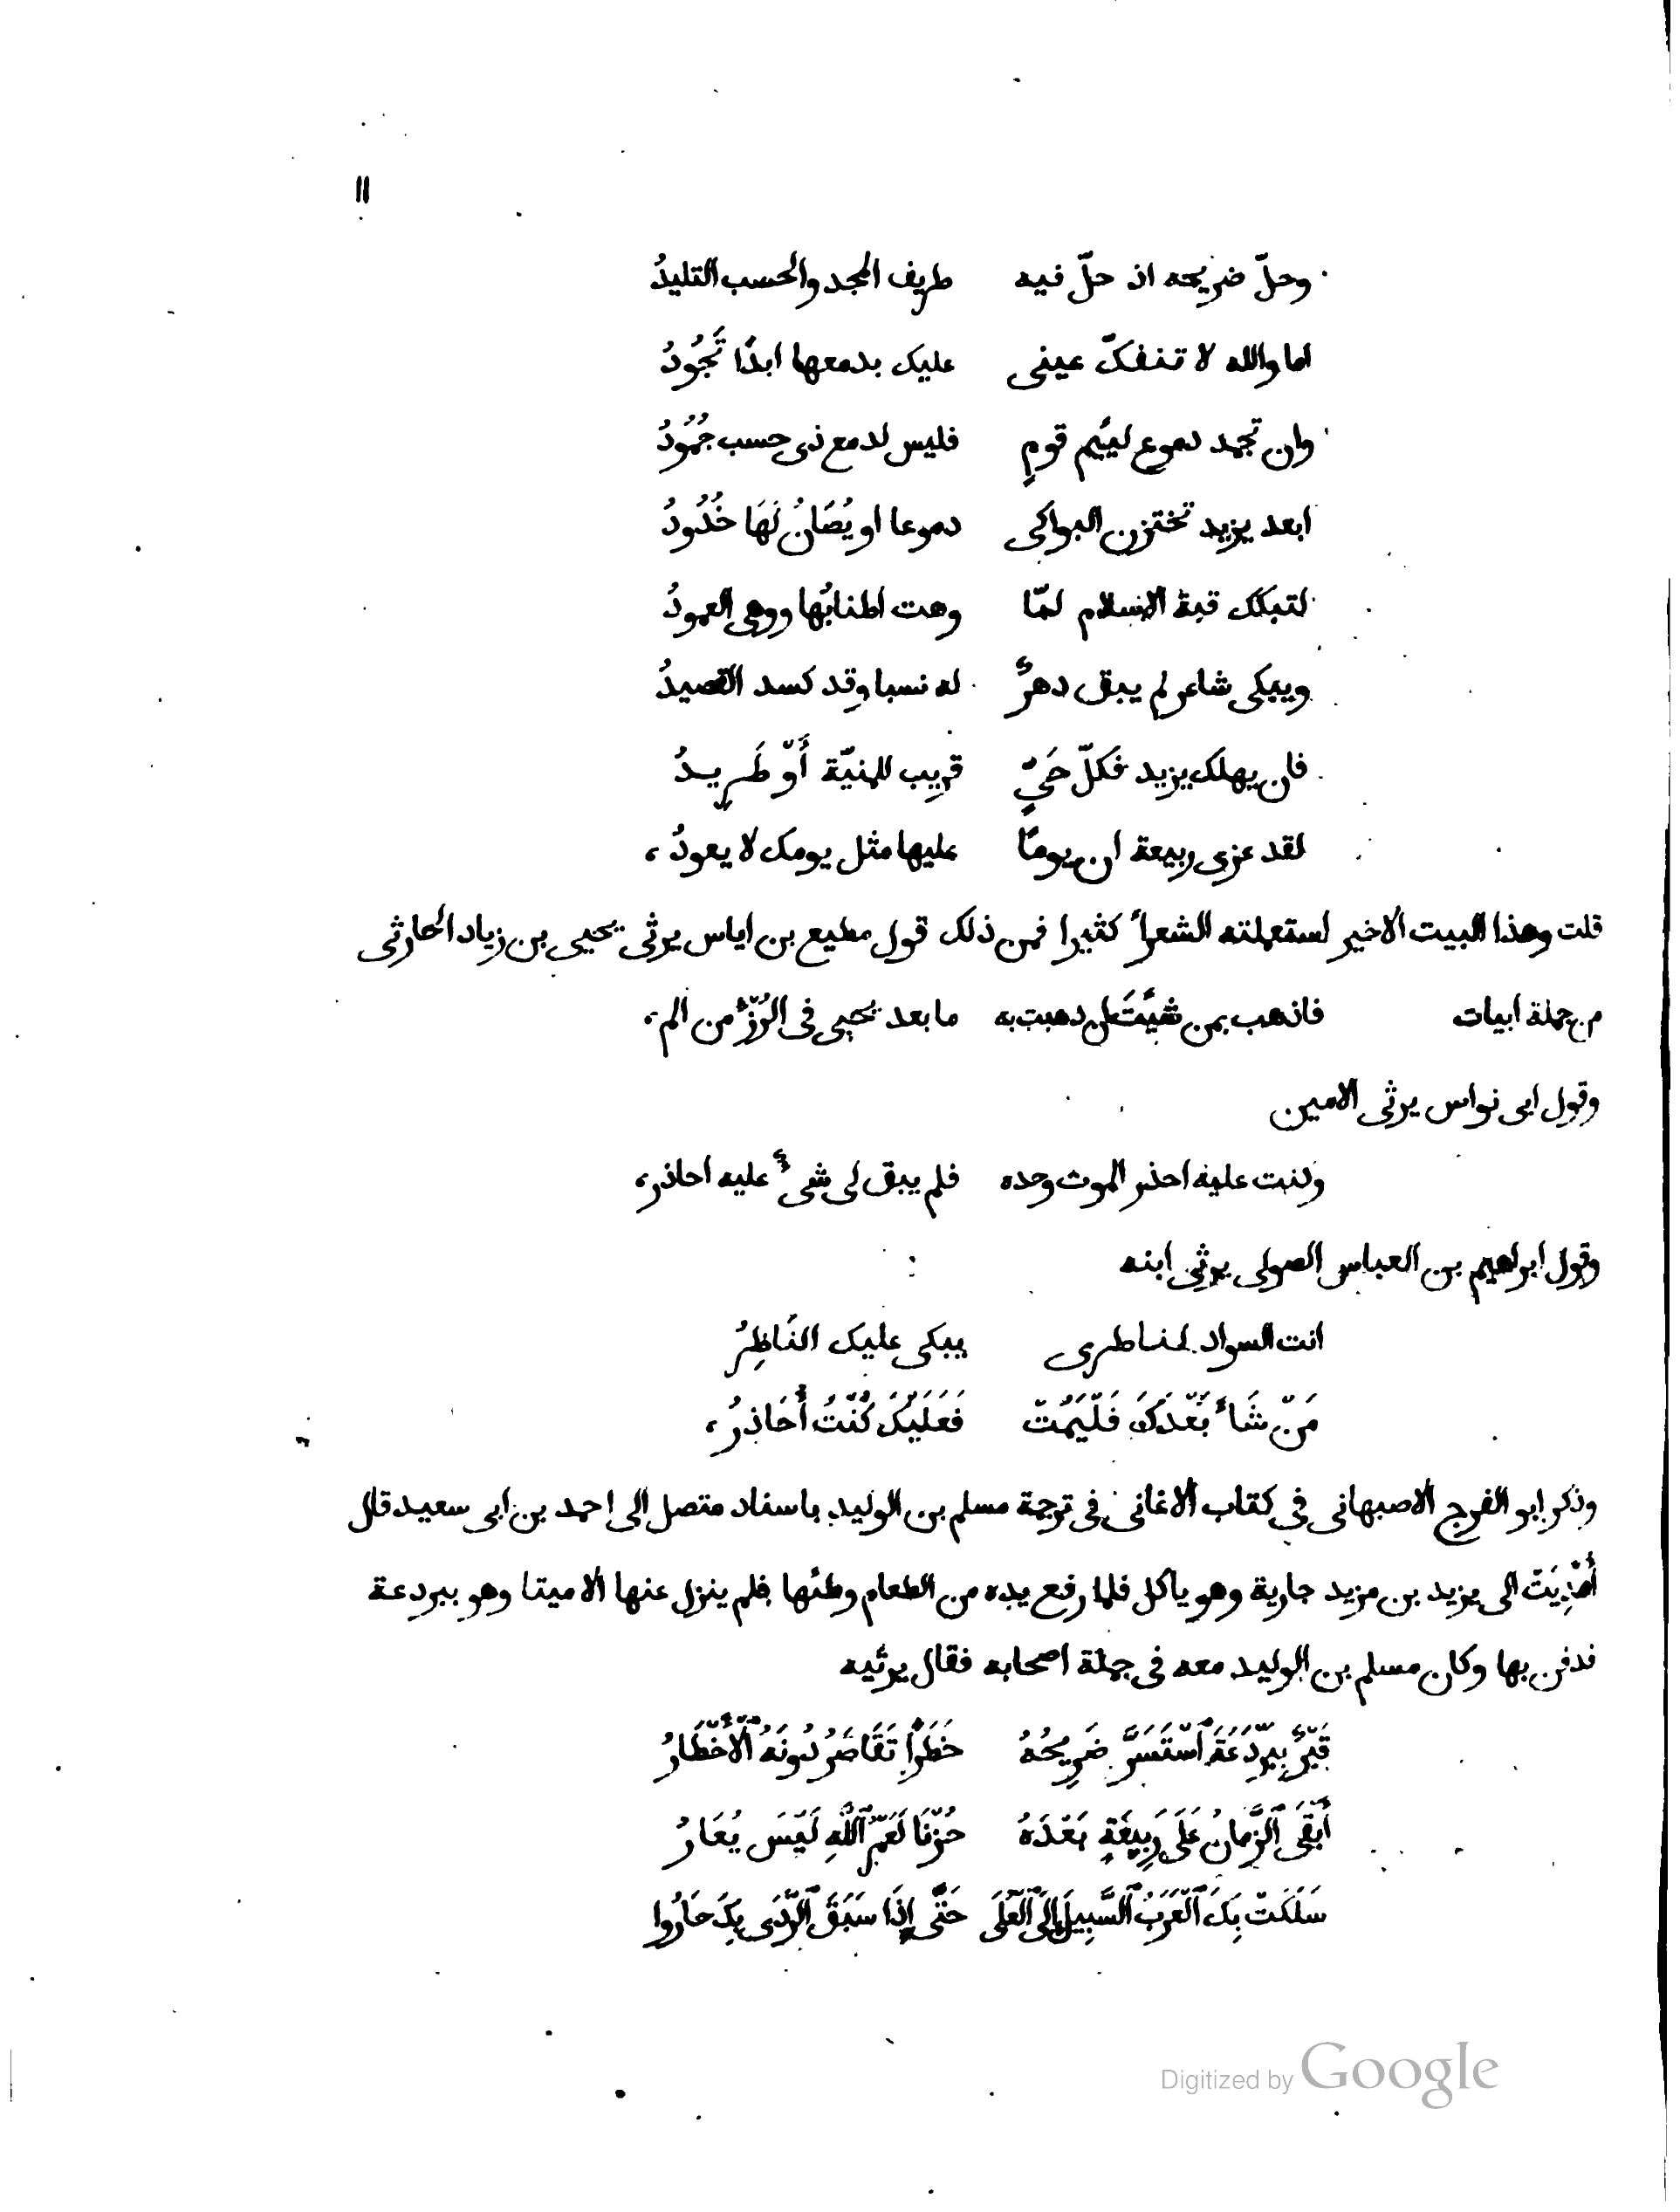 ١١
وحلّ ضريحه اذ حلّ فيه طريف المجد والحسب التليدُ
اما والله لا تنفكّ عينى عليك بدمعها ابدًا تَجُودُ
وان تجمد دموع ليئم قومٍ فليس لدمع ذى حسب جُمُودُ
ابعد يزيد تختزن البواكى دموعا او يُصَانُ لَهَا خُدُودُ
لتبكك قبة الاسلام لمّا وهت اطنابُها ووهى العمودُ
ويبكى شاعر لم يبق دهرٌ له نسبا وقد كسد القصيدُ
فان يهلك يزيد فكلّ حَىٍّ قريب للمنيّة أَوْ طَرِيدُ
لقد عزى ربيعة ان يومًا عليها مثل يومك لا يعودُ،
قلت وهذا البيت الاخير استعملته الشعرأ كثيرا فمن ذلك قول مطيع بن اياس يرثى يحيى بن زياد الحارثى
من جملة ابيات فاذهب بمن شئتَ ان ذهبت به ما بعد يحيى فى الرُزْء من الم،
وقول ابى نواس يرثى الامين
وكنت عليه احذر الموت وحده فلم يبق لى شىٌٔ عليه احاذر،
وقول ابراهيم بن العباس الصولى يرثى ابنه
انت السواد لناظرى يبكى عليك النَّاظِرُ
مَنْ شَأَ بَعْدَكَ فَلْيَمُتْ فَعَلَيْكَ كُنْتُ أُحَاذِرُ،
وذكر ابو الفرج الاصبهانى فى كتاب الاغانى فى ترجمة مسلم بن الوليد باسناد متصل الى احمد بن ابى سعيد قال
أُهْدِيَتْ الى يزيد بن مزيد جارية وهو ياكل فلما رفع يده من الطعام وطئها فلم ينزل عنها الا ميتا وهو ببردعة
فدفن بها وكان مسلم بن الوليد معه فى جملة اصحابه فقال يرثيه
قَبْرٌ بِبَرْدَعَةَ ٱسْتَسَرَّ ضَرِيحُهُ خَطَرًا تَقَاصَرُ دُونَهُ ٱلْأَخْطَارُ
أَبْقَى ٱلزَّمَانُ عَلَى رَبِيعَةٍ بَعْدَهُ حُزْنًا لَعَمْرُ ٱللَّهِ لَيْسَ يُعَارُ
سَلَكَتْ بِكَ ٱلْعَرَبُ ٱلسَّبِيلَ إِلَى ٱلْعُلَى حَتَّى إِذَا سَبَقَ ٱلرَّدَى بِكَ حَارُوا
Digitized by Google